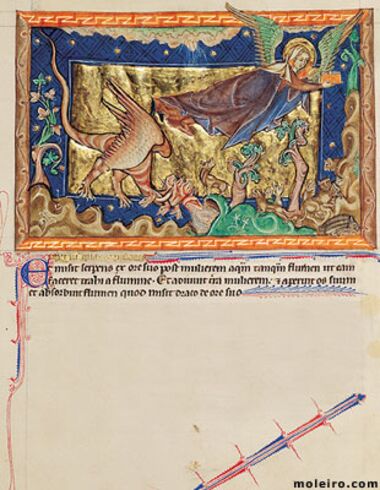 Et misit serpens ex ore suo post mulierem aqm tanqm flumen ut eam
faceret trahi a flumine. Et adiuvit tra mulierem: & aperuit os suum
et absorbuit flumen quod misit draco de ore suo
moleiro.com